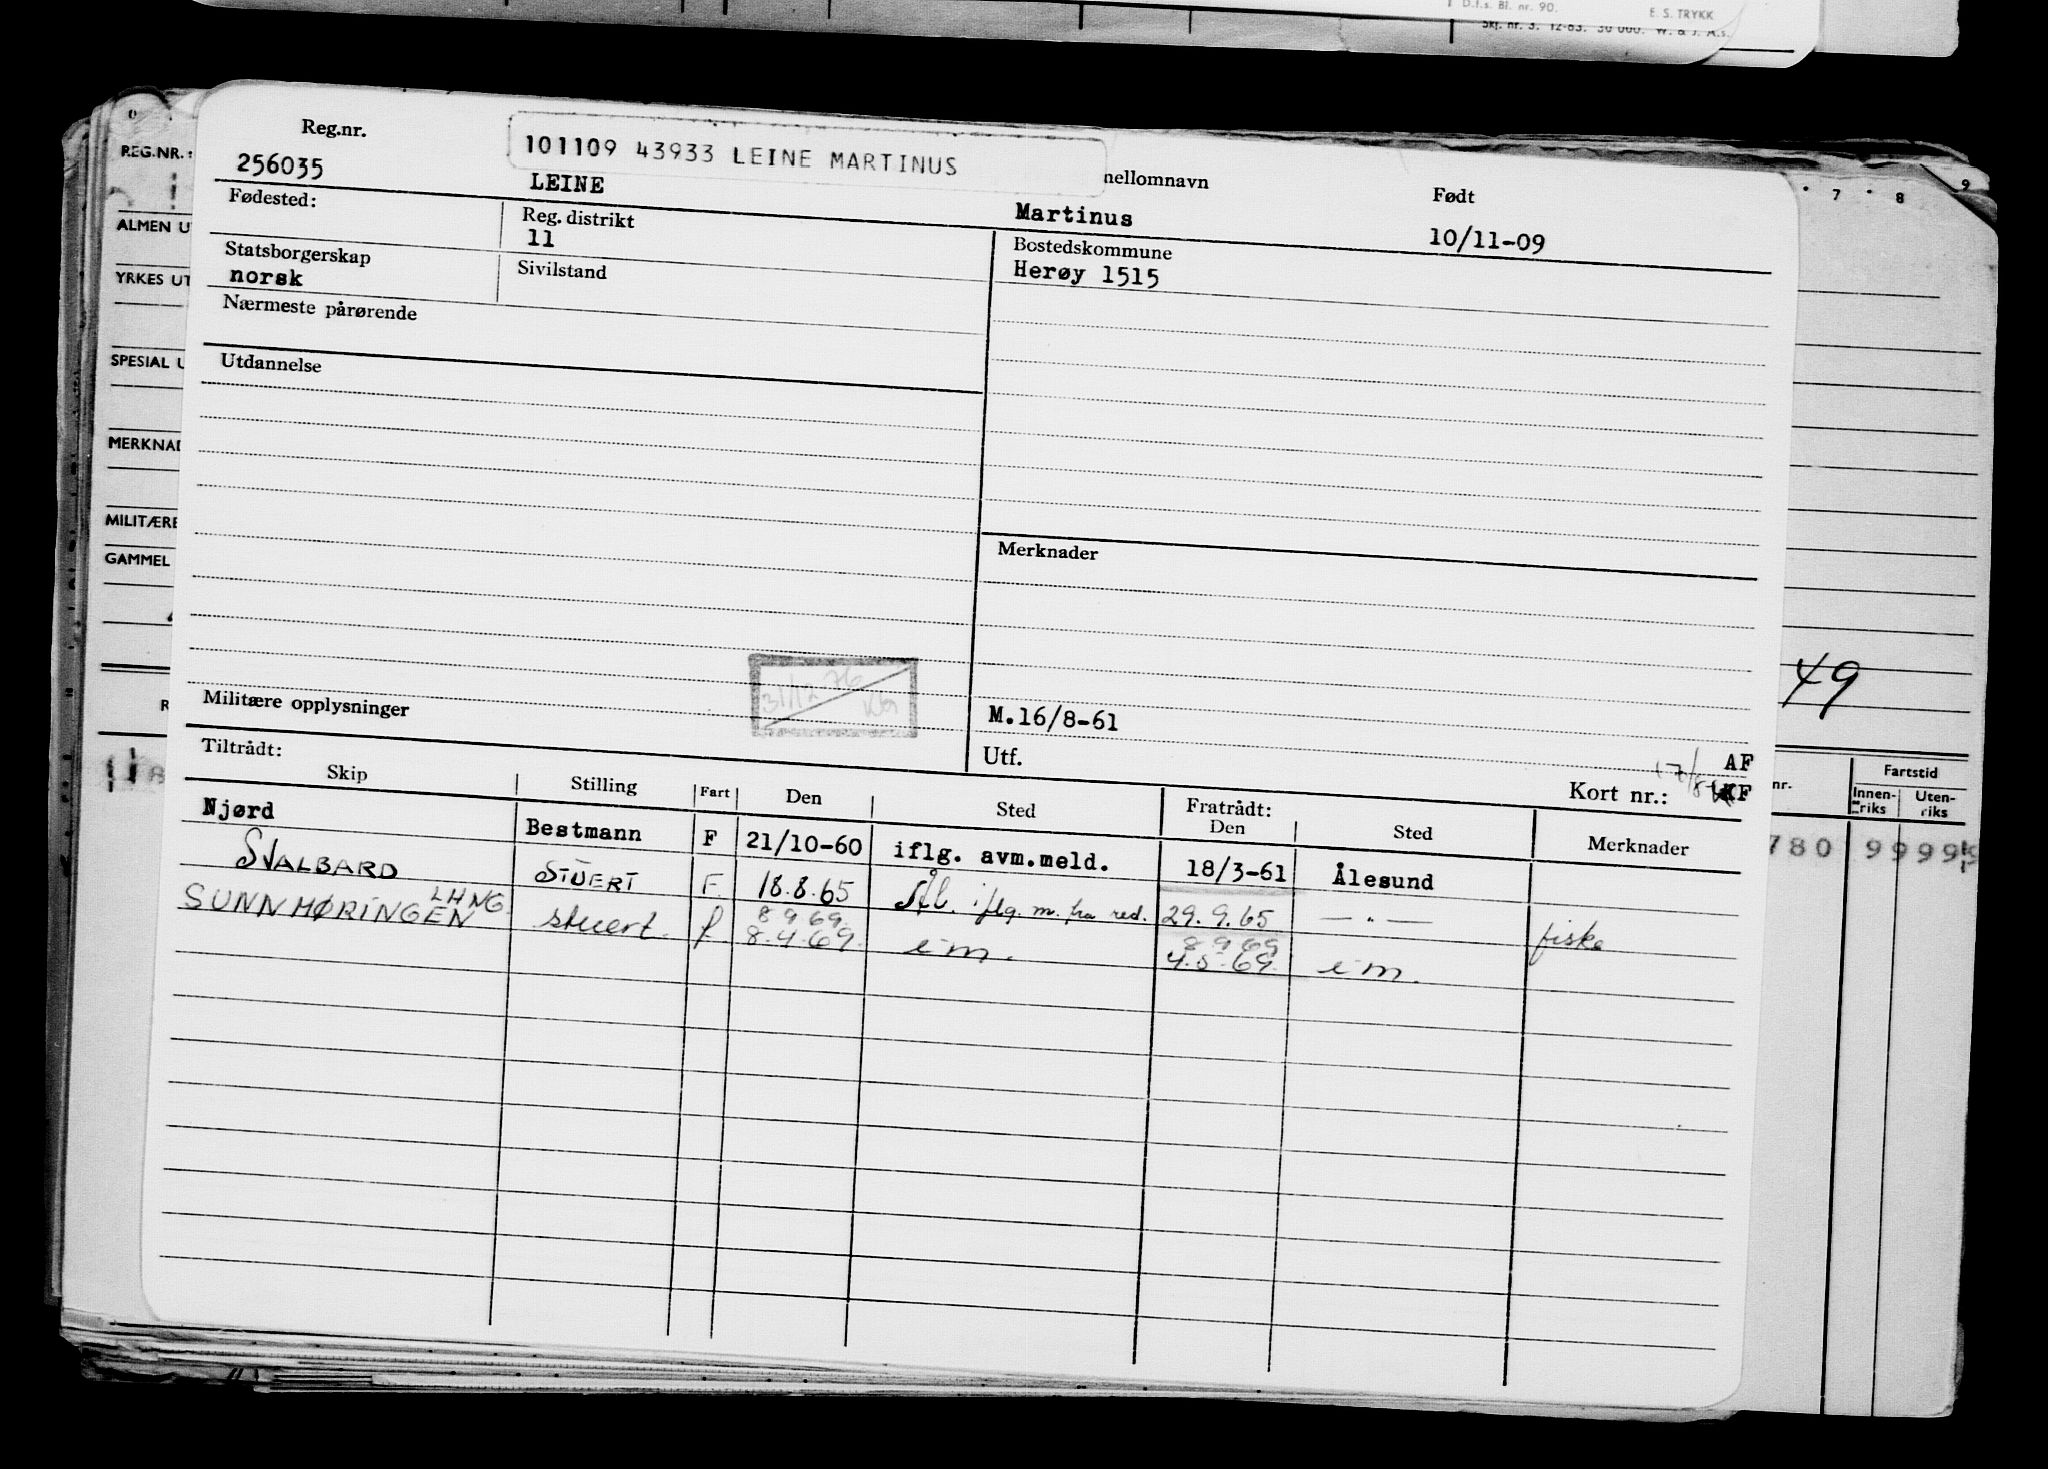 D.f.s. Bl. nr. 90. E. S. TRYKK
Skj. nr. 3. 12-63. 30 000. W. & J. A.s.
REG.NR.:
ALMEN U
YRKES UT
SPESIAL U
MERKNAD
MILITÆRE
GAMMEL
Reg.nr.
256035
101109 43933 LEINE MARTINUS
LEINE
mellomnavn
Martinus
Født
10/11-09
Fødested:
Reg. distrikt
11
Bostedskommune
Herøy 1515
Statsborgerskap
norsk
Sivilstand
Nærmeste pårørende
Utdannelse
Merknader
31/12 76
Militære opplysninger
M.16/8-61
Utf.
AF
Kort nr.: KF
Tiltrådt:
Skip Stilling Fart Den Sted Fratrådt: Den Sted Merknader
Njørd Bestmann F 21/10-60 iflg. avm.meld. 18/3-61 Ålesund
SVALBARD STUERT F 18.8.65 Ål. iflg. m. fra red. 29.9.65 — " —
LHNG.
8 9 69 8 9 69
SUNNMØRINGEN stuert. f 8.4.69. e m. 4.5.69. e m. fiske
7 8 9
49
nr. Fartstid
Innen-riks Uten-riks
780 9999